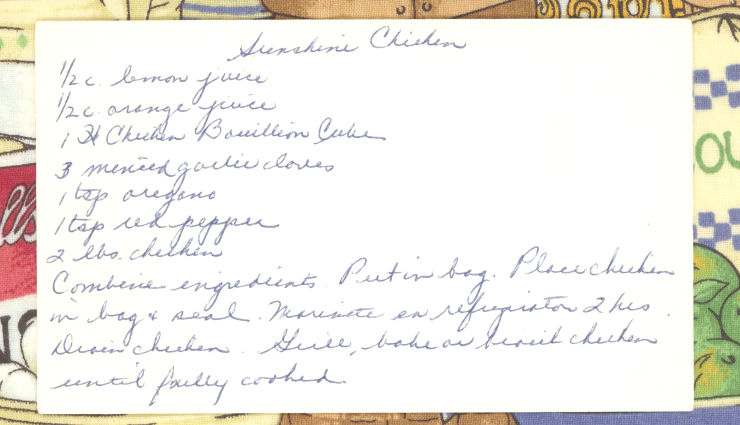 Sunshine Chicken
1/2 c. lemon juice
1/2 c. orange juice
1 Chicken Bouillion Cube
3 minced garlic cloves
1 tsp oregano
1 tsp red pepper
2 lbs. chicken
Combine ingredients. Put in bag. Place chicken
in bag & seal. Marinate in refrigirator 2 hrs.
Drain chicken. Grill, bake or broil chicken
until fully cooked.